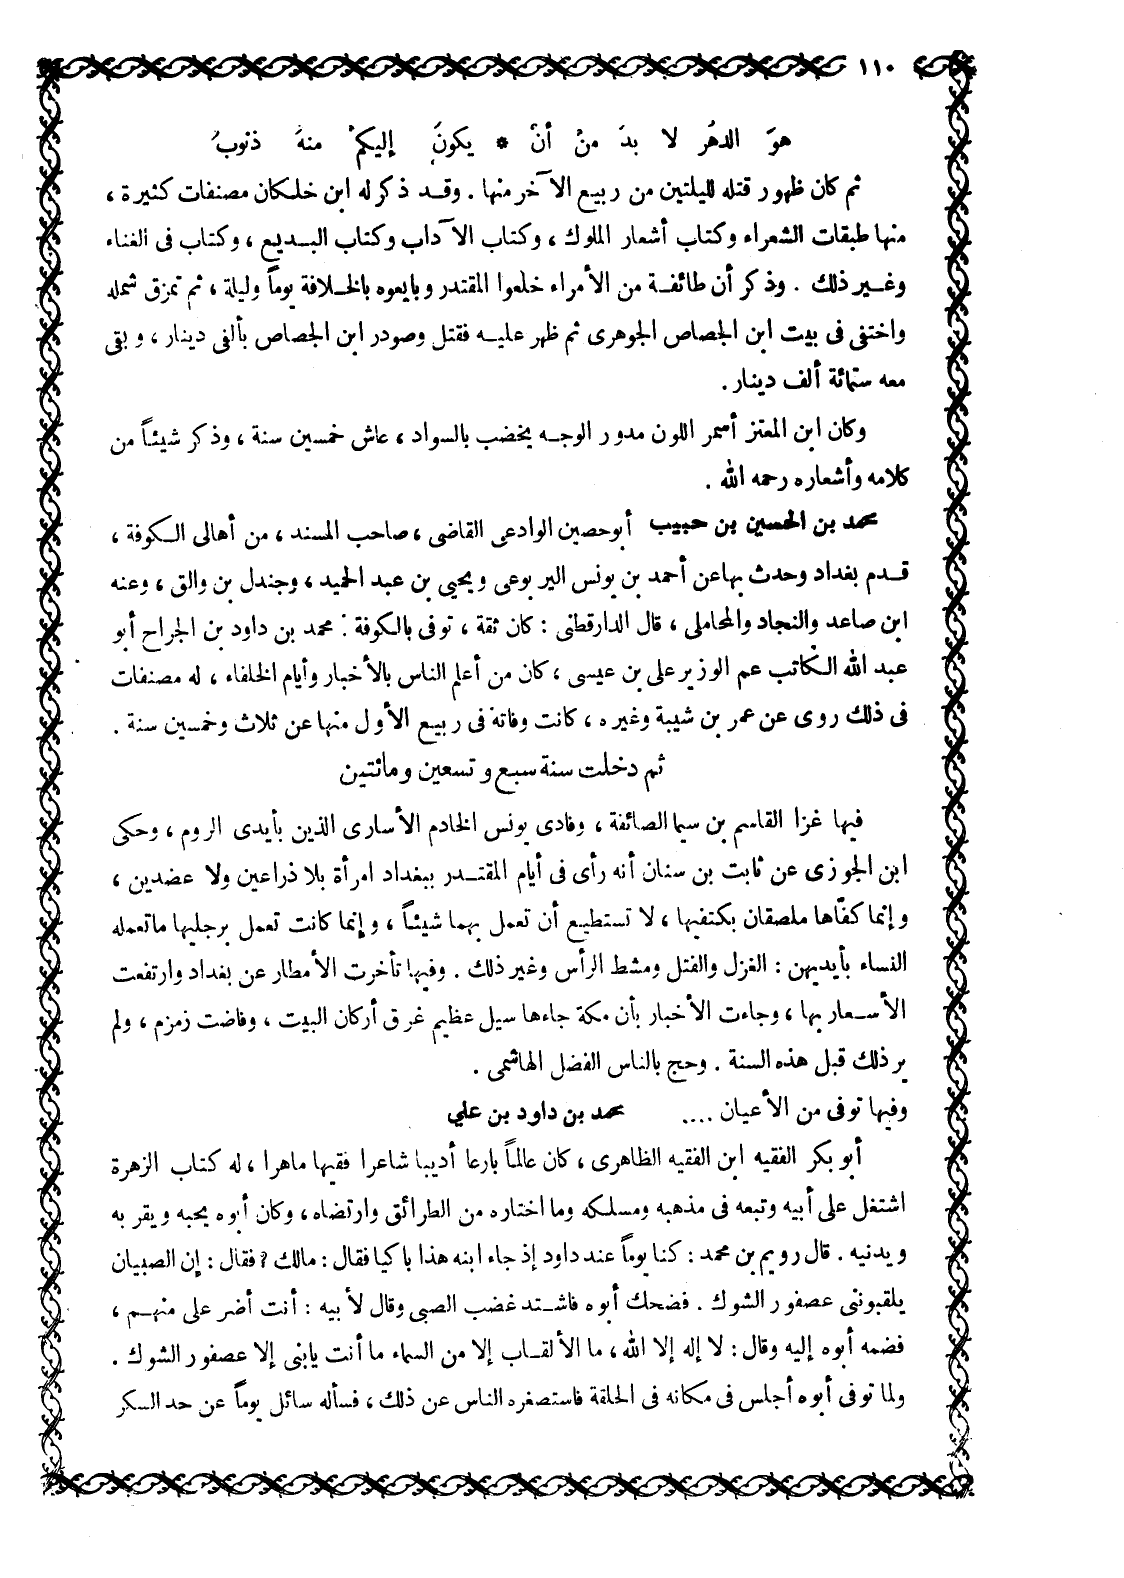 ١١٠
هوَ الدهُر لا بدَ منْ أنْ * يكونَ إليكمْ منهُ ذنوبُ
ثم كان ظهور قتله لليلتين من ربيع الآخر منها . وقد ذكر له ابن خلكان مصنفات كثيرة ،
منها طبقات الشعراء وكتاب أشعار الملوك ، وكتاب الآداب وكتاب البديع ، وكتاب فى الغناء
وغير ذلك . وذكر أن طائفة من الأمراء خلعوا المقتدر وبايعوه بالخلافة يوماً وليلة ، ثم تمزق شمله
واختفى فى بيت ابن الجصاص الجوهرى ثم ظهر عليه فقتل وصودر ابن الجصاص بألفى دينار ، وبقى
معه ستمائة ألف دينار .
وكان ابن المعتز أسمر اللون مدور الوجه يخضب بالسواد ، عاش خمسين سنة ، وذكر شيئاً من
كلامه وأشعاره رحمه الله .
محمد بن الحسين بن حبيب أبوحصين الوادعى القاضى ، صاحب المسند ، من أهالى الكوفة ،
قدم بغداد وحدث بها عن أحمد بن يونس اليربوعى ويحيى بن عبد الحميد ، وجندل بن والق ، وعنه
ابن صاعد والنجاد والمحاملى ، قال الدارقطنى : كان ثقة ، توفى بالكوفة : محمد بن داود بن الجراح أبو
عبد الله الكاتب عم الوزير على بن عيسى ، كان من أعلم الناس بالأخبار وأيام الخلفاء ، له مصنفات
فى ذلك روى عن عمر بن شيبة وغيره ، كانت وفاته فى ربيع الأول منها عن ثلاث وخمسين سنة .
ثم دخلت سنة سبع وتسعين ومائتين
فيها غزا القاسم بن سيما الصائفة ، وفادى يونس الخادم الأسارى الذين بأيدى الروم ، وحكى
ابن الجوزى عن ثابت بن سنان أنه رأى فى أيام المقتدر ببغداد امرأة بلا ذراعين ولا عضدين ،
وإنما كفّاها ملصقان بكتفيها ، لا تستطيع أن تعمل بهما شيئاً ، وإنما كانت تعمل برجليها ماتعمله
النساء بأيديهن : الغزل والفتل ومشط الرأس وغير ذلك . وفيها تأخرت الأمطار عن بغداد وارتفعت
الأسعار بها ، وجاءت الأخبار بأن مكة جاءها سيل عظيم غرق أركان البيت ، وفاضت زمزم ، ولم
ير ذلك قبل هذه السنة . وحج بالناس الفضل الهاشمى .
وفيها توفى من الأعيان .... محمد بن داود بن علي
أبو بكر الفقيه ابن الفقيه الظاهرى ، كان عالماً بارعا أديبا شاعرا فقيها ماهرا ، له كتاب الزهرة
اشتغل على أبيه وتبعه فى مذهبه ومسلكه وما اختاره من الطرائق وارتضاه ، وكان أبوه يحبه ويقربه
ويدنيه . قال رويم بن محمد : كنا يوماً عند داود إذ جاء ابنه هذا باكيا فقال : مالك ؟ فقال : إن الصبيان
يلقبوننى عصفور الشوك . فضحك أبوه فاشتد غضب الصبى وقال لأبيه : أنت أضر على منهم ،
فضمه أبوه إليه وقال : لا إله إلا الله ، ما الألقاب إلا من السماء ما أنت يابنى إلا عصفور الشوك .
ولما توفى أبوه أجلس فى مكانه فى الحلقة فاستصغره الناس عن ذلك ، فسأله سائل يوماً عن حد السكر